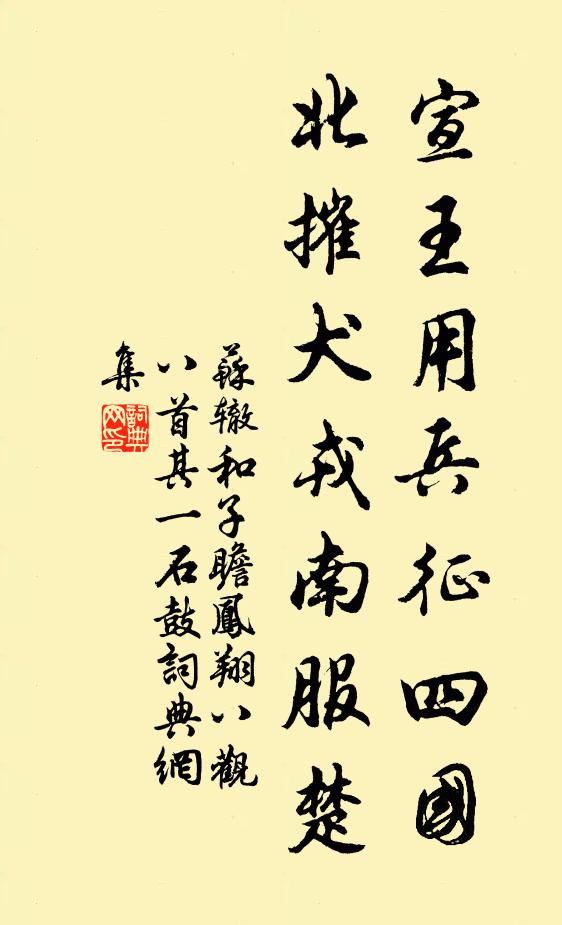 宣王用兵征四國
北摧犬戎南服楚
蘇辙和子瞻鳳翔八觀
八首其一石鼓詞典網
集
詞典
网印